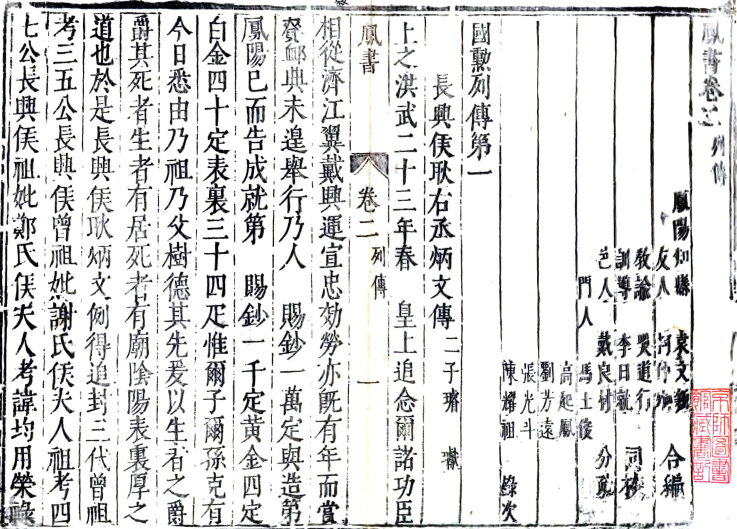 鳳書卷二 列傳
鳳陽知縣 袁文新 合編
友人
教諭 吳道行
訓導 李日就 同校
邑人 戴良材 分輯
門人 馬士俊
高起鳳
劉芳遠
張光斗
陳耀祖 錄次
國勲列傳第一
長興侯耿右丞炳文傳 二子璿 瓛
上之洪武二十三年春 皇上追念爾諸功臣
鳳書 卷二 列傳 一
相從濟江翼戴興運宣忠効勞亦旣有年而賞
賚邮典未遑舉行乃人 賜鈔一萬定與造第
鳳陽已而告成就第 賜鈔一千定黃金四定
白金四十定表裏三十四疋惟爾子爾孫克有
今日悉由乃祖乃父樹德其先爰以生者之爵
爵其死者生者有居死者有廟陰陽表裏厚之
道也於是長興侯耿炳文例得追封三代曾祖
考三五公長興侯曾祖妣謝氏侯夫人祖考四
七公長興侯祖妣鄭氏侯夫人考諱均用榮祿